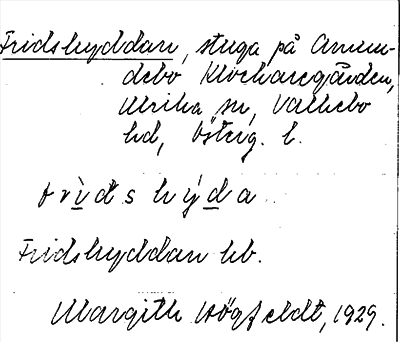 Fridshyddan, stuga på Amun-
debo Klockaregården,
Ulrika sn, Valkebo
hd, Österg. l.
frìdshýda
Fridshyddan hb.
Margith Högfeldt, 1929.